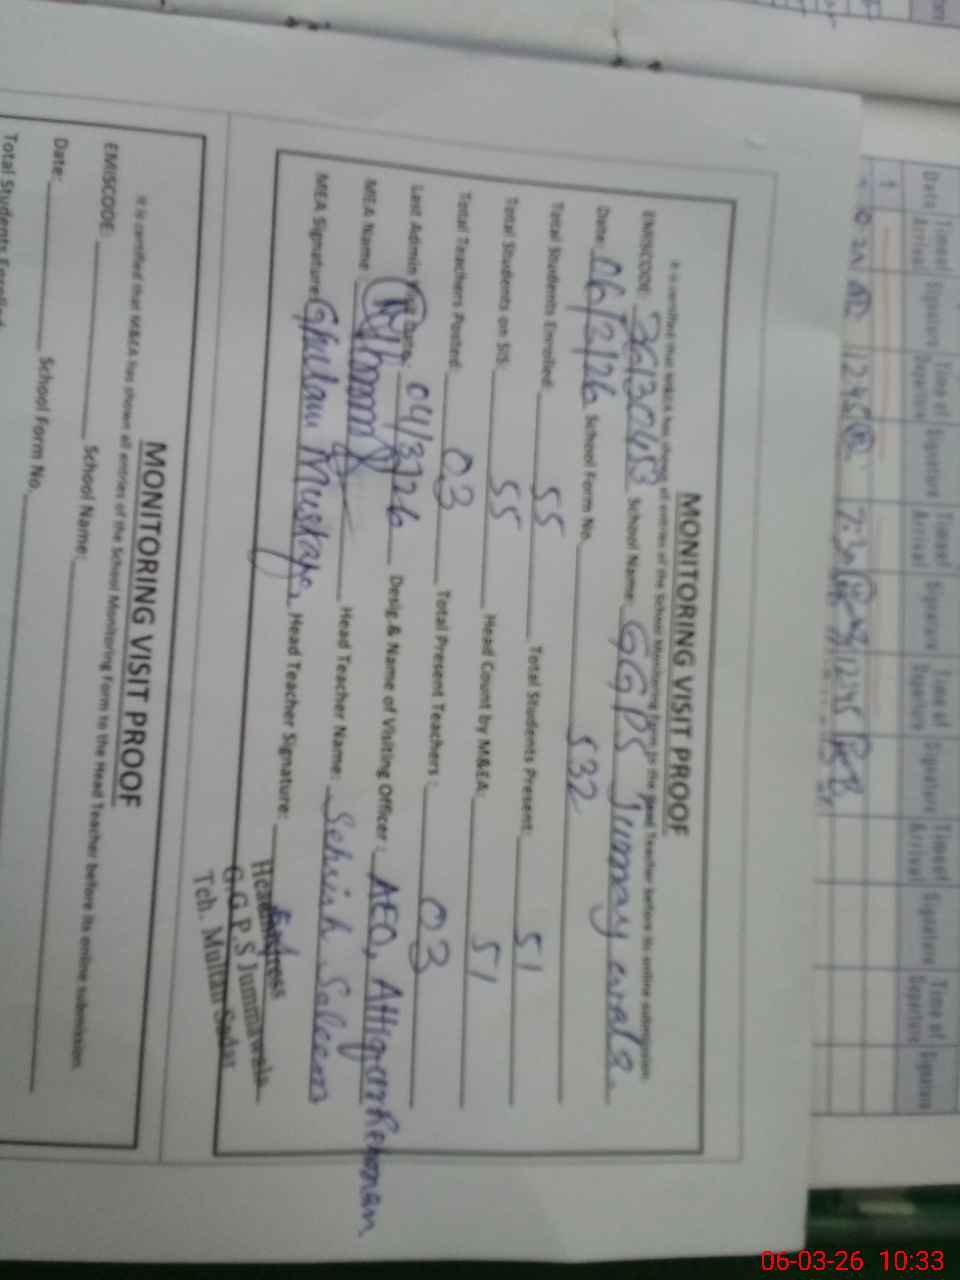 MONITORING VISIT PROOF
It is certified that M&EA has shown all entries of the School Monitoring Form to the Head Teacher before its online submission
EMISCODE: 36130453 School Name: GGPS Jummay wala.
Date: 06/3/26 School Form No. 532
Total Students Enrolled: 55 Total Students Present: 51
Total Students on SIS: 55 Head Count by M&EA: 51
Total Teachers Posted: 03 Total Present Teachers: 03
Last Admin Visit Date: 04/3/26 Desig & Name of Visiting Officer: AEO, Attiqur Rehman
MEA Name: Head Teacher Name: Sehrish Saleem
MEA Signature: Ghulam Mustafa. Head Teacher Signature:
Headmistress
G.G.P.S Jummawala
Teh. Multan Sadar
MONITORING VISIT PROOF
It is certified that M&EA has shown all entries of the School Monitoring Form to the Head Teacher before its online submission.
EMISCODE: School Name:
Date: School Form No.
Total Students Enrolled
Date Time of Arrival Signature Time of Departure Signature Time of Arrival Signature Time of Departure Signature Time of Arrival Signature Time of Departure Signature
1
1245 7:30 1245
06-03-26 10:33